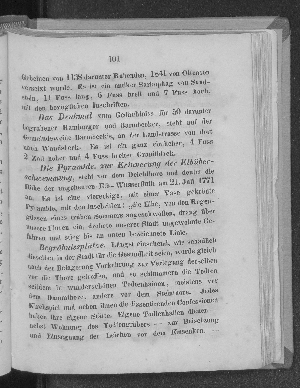 101
Gebeinen von 1138 darunter Ruhenden, 1841 von Ottensen
versetzt wurde. Es ist ein antiker Sarkophag von Sand-
stein, 11 Fuss lang, 6 Fuss breit und 7 Fuss hoch
mit den bezüglichen Inschriften.
Das Denkmal zum Gedächtniss für 50 darunter
begrabener Hamburger und Barmbecker, steht auf der
Gemeindeweide Barmbecks, an der Landstrasse von dort
nach Wandsbeck. Es ist ein ganz einfacher, 4 Fuss
2 Zoll hoher und 4 Fuss breiter Granitblock.
Die Pyramide, zur Erinnerung der Elbüber-
schwemmung, steht vor dem Deichthore und deutet die
Höhe der ungeheuren Elb-Wasserfluth am 21. Juli 1771
an. Es ist eine viereckige, mit einer Vase gekrönte
Pyramide, mit den Inschriften: „die Elbe, von den Regen-
güssen eines trüben Sommers angeschwollen, drang über
unsere Fluren ein, drohte unserer Stadt ungewohnte Ge-
fahren und stieg bis an untenbezeichnete Linie.
Begräbnissplätze. Längst einsehend, wie schädlich
Grüften in der Stadt für die Gesundheit seien, wurde gleich
nach der Belagerung Vorkehrung zur Verlegung derselben
vor die Thore getroffen, und so schlummern die Todten
seitdem in wunderschönen Todtenhainen, meistens vor
dem Dammthore, andere vor dem Steinthore. Jedes
Kirchspiel und schon ihnen die Existirenden Confessionen
haben ihre eigene Stätte. Eigene Todtenhallen dienen
nebst Wohnung des Todtengräbers — zur Beisetzung
und Einsegnung der Leichen vor dem Einsenken. —